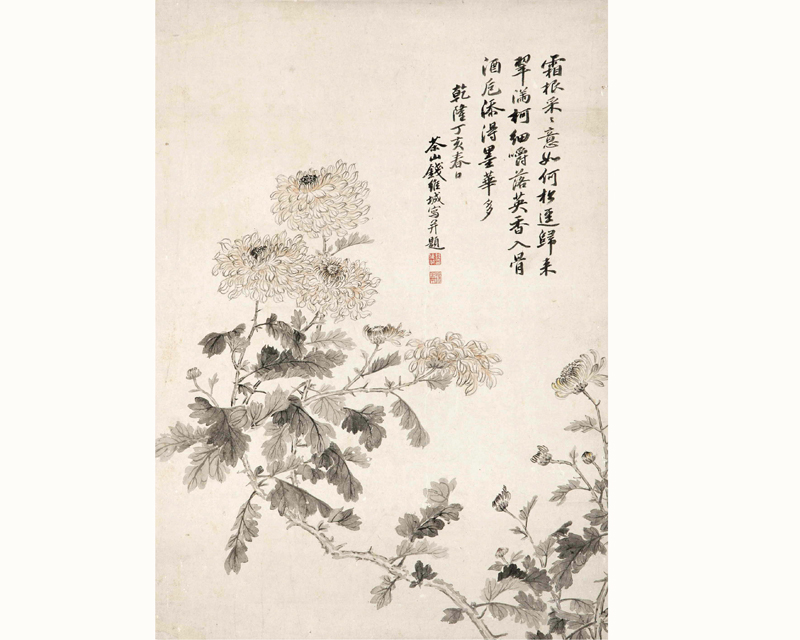 霜根采采意如何松逕歸来
翠滿柯細嚼落英香入骨
酒卮添得墨華多
乾隆丁亥春日
茶山錢維城寫并題